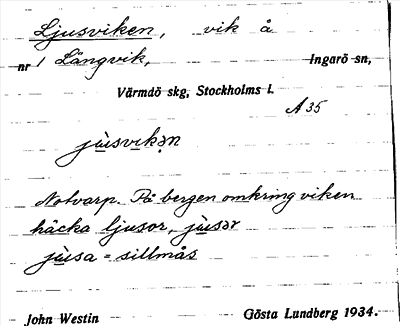 Ljusviken, vik å
nr 1 Långvik, Ingarö sn,
Värmdö skg, Stockholms l.
A 35
jùsvikən
Notvarp. På bergen omkring viken
häcka ljusor, jùsər
jùsa = sillmås
John Westin Gösta Lundberg 1934.